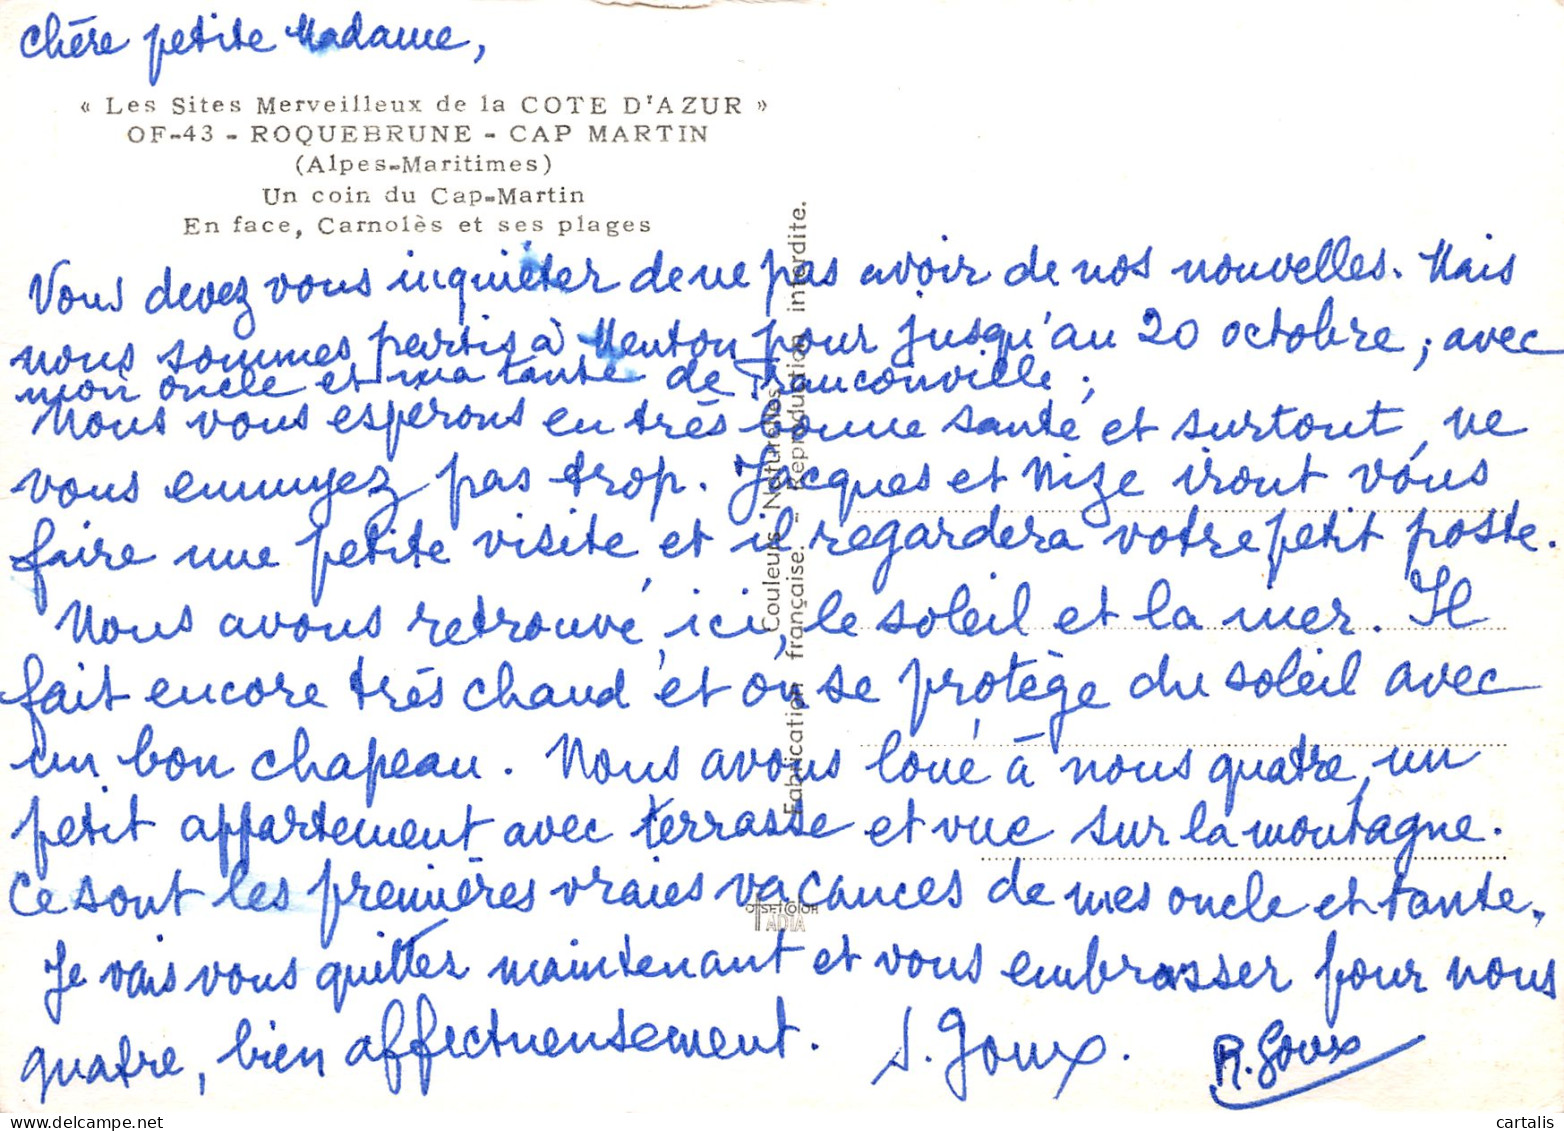 Chère petite Madame,
« Les Sites Merveilleux de la COTE D'AZUR »
OF-43 - ROQUEBRUNE - CAP MARTIN
(Alpes-Maritimes)
Un coin du Cap-Martin
En face, Carnolès et ses plages
Vous devez vous inquiéter de ne pas avoir de nos nouvelles. Mais
nous sommes partis à Menton pour jusqu'au 20 octobre, avec
mon oncle et ma tante de Franconville ;
Nous vous espérons en très bonne santé et surtout, ne
vous ennuyez pas trop. Jacques et Nize iront vous
faire une petite visite et il regardera votre petit poste.
Nous avons retrouvé, ici, le soleil et la mer. Il
fait encore très chaud et on se protège du soleil avec
un bon chapeau. Nous avons loué à nous quatre, un
petit appartement avec terrasse et vue sur la montagne.
Ce sont les premières vraies vacances de mes oncle et tante.
Je vais vous quitter maintenant et vous embrasser pour nous
quatre, bien affectueusement. S. Goux. R. Goux
Fabrication française. - Reproduction interdite.
Couleurs Naturelles
OFFSETCOLOR
IADIA
www.delcampe.net
cartalis